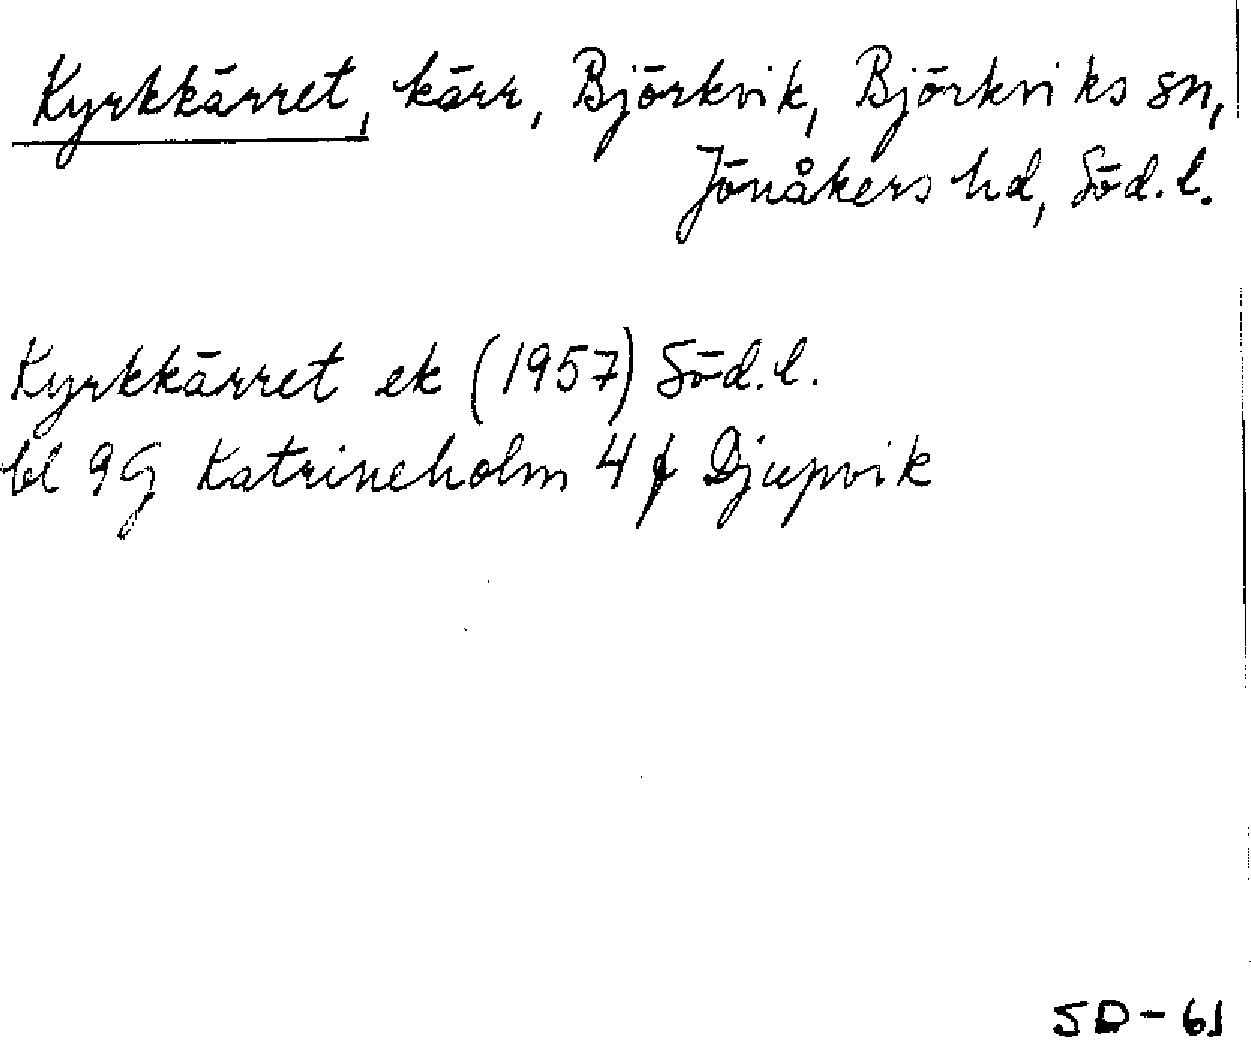 Kyrkkärret, kärr, Björkvik, Björkviks sn,
Jönåkers hd, Söd. l.
Kyrkkärret ek (1957) Söd. l.
bl 9G Katrineholm 4 f Djupvik
SD-61